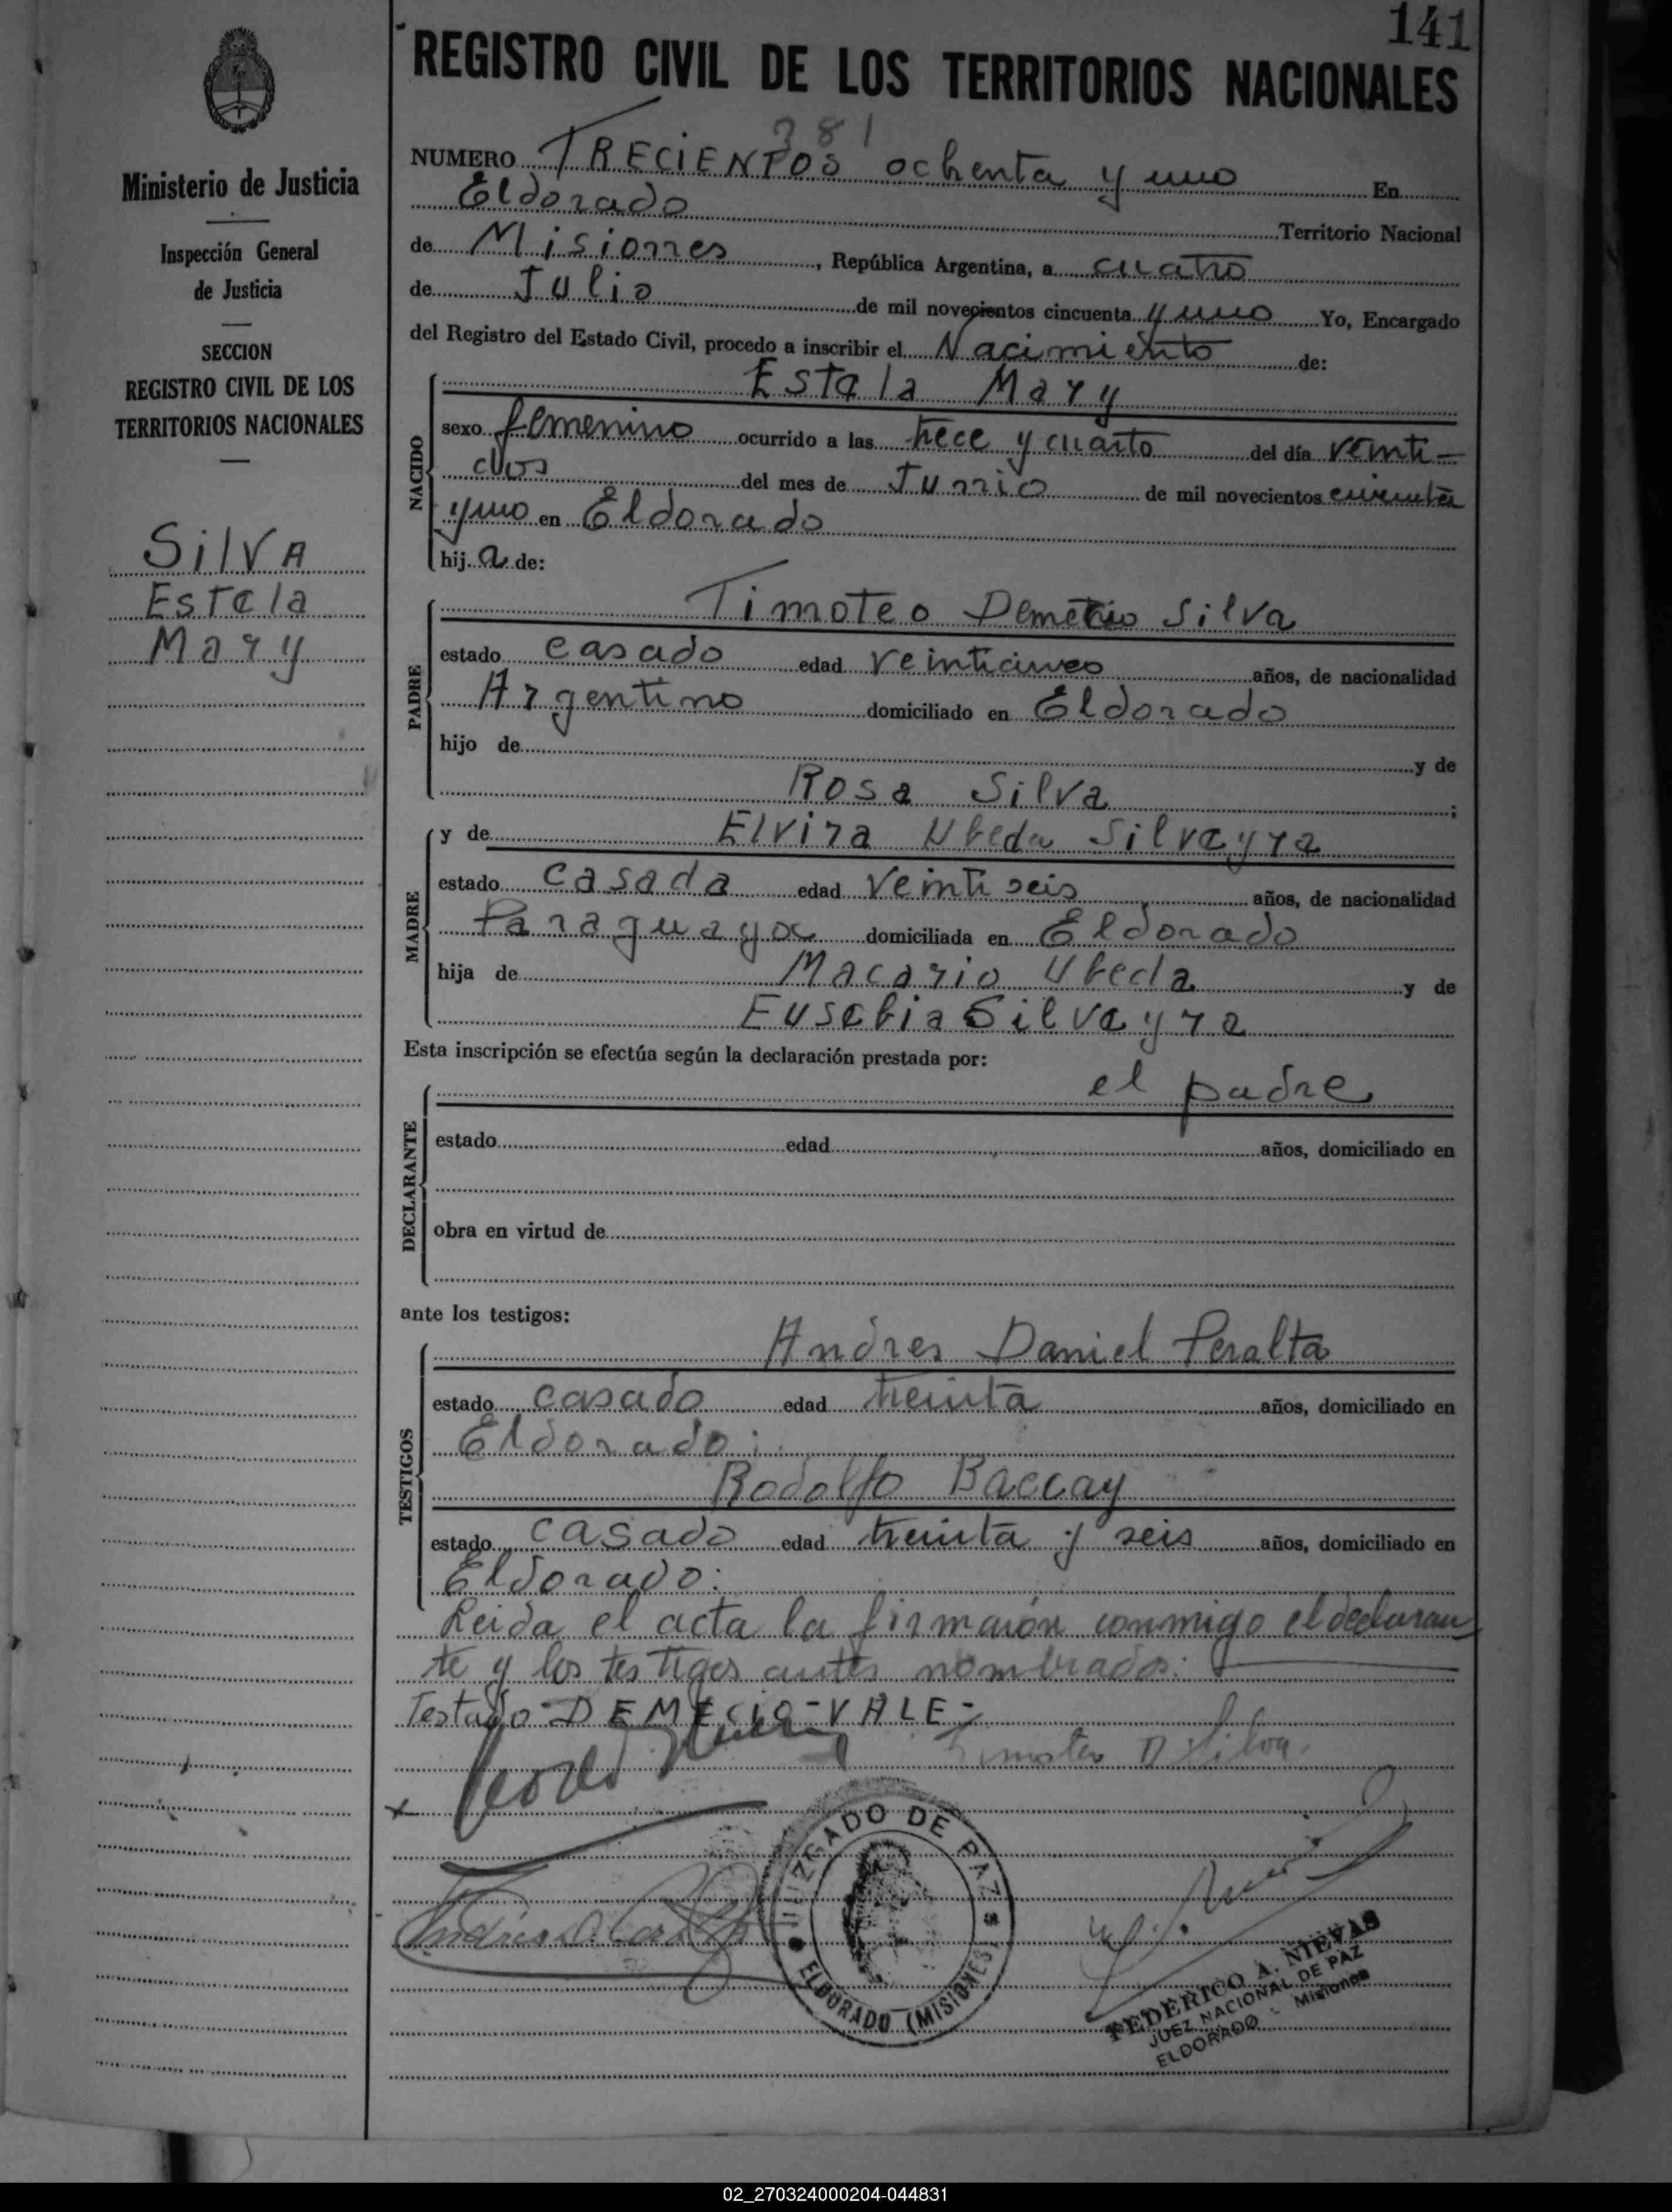 141
REGISTRO CIVIL DE LOS TERRITORIOS NACIONALES
Ministerio de Justicia
Inspección General
de Justicia
SECCION
REGISTRO CIVIL DE LOS
TERRITORIOS NACIONALES
SilVA
Estela
Mary
381
NUMERO TRECIENTOS ochenta y uno En
Eldorado Territorio Nacional
de Misiones, República Argentina, a cuatro
de Julio de mil novecientos cincuenta y uno Yo, Encargado
del Registro del Estado Civil, procedo a inscribir el Nacimiento de:
NACIDO
Estela Mary
sexo femenino ocurrido a las trece y cuarto del día veinti-
dos del mes de Junio de mil novecientos cincuenta
y uno en Eldorado
hij a de:
PADRE
Timoteo Demetrio Silva
estado casado edad veinticinco años, de nacionalidad
Argentino domiciliado en Eldorado
hijo de y de
Rosa Silva ;
MADRE
y de Elvira Ubeda Silveyra
estado casada edad veintiseis años, de nacionalidad
Paraguaya domiciliada en Eldorado
hija de Macario Ubeda y de
Eusebia Silveyra
Esta inscripción se efectúa según la declaración prestada por:
DECLARANTE
el padre
estado edad años, domiciliado en
obra en virtud de
ante los testigos:
TESTIGOS
Andres Daniel Peralta
estado casado edad treinta años, domiciliado en
Eldorado:
Rodolfo Baccay
estado casado edad treinta y seis años, domiciliado en
Eldorado:
Leida el acta la firmaron conmigo el declaran
te y los testigos antes nombrados:
Testado-DEMECIO-VALE-
Timoteo D Silva
JUZGADO DE PAZ
ELDORADO (MISIONES)
FEDERICO A. NIEVAS
JUEZ NACIONAL DE PAZ
ELDORADO - Misiones
02_270324000204-044831